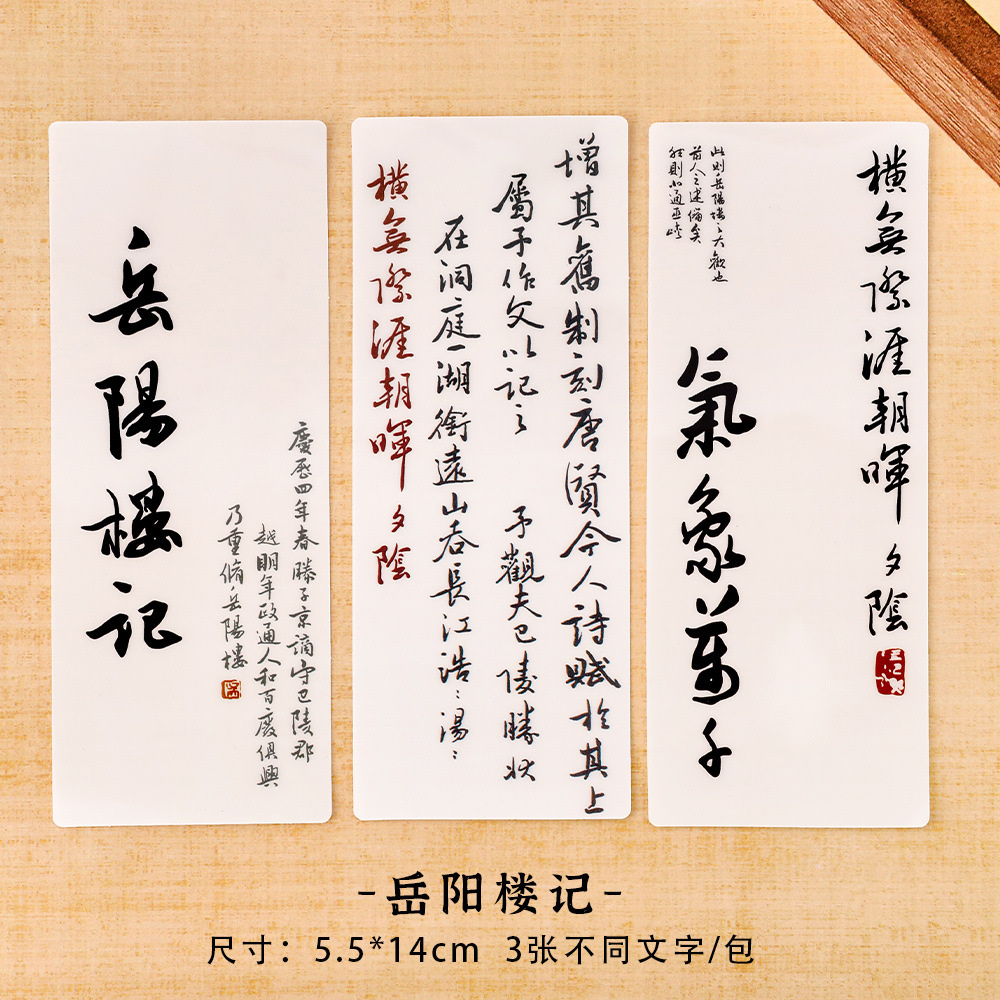 岳陽樓记
慶歷四年春滕子京謫守巴陵郡
越明年政通人和百廢俱興
乃重脩岳陽樓
增其舊制刻唐賢今人詩賦於其上
屬予作文以記之 予觀夫巴陵勝狀
在洞庭一湖銜遠山吞長江浩:湯:
橫無際涯朝暉夕陰
橫無際涯朝暉夕陰
氣象萬千
此則岳陽樓之大觀也
前人之述備矣
然則北通巫峽
-岳阳楼记-
尺寸：5.5*14cm 3张不同文字/包